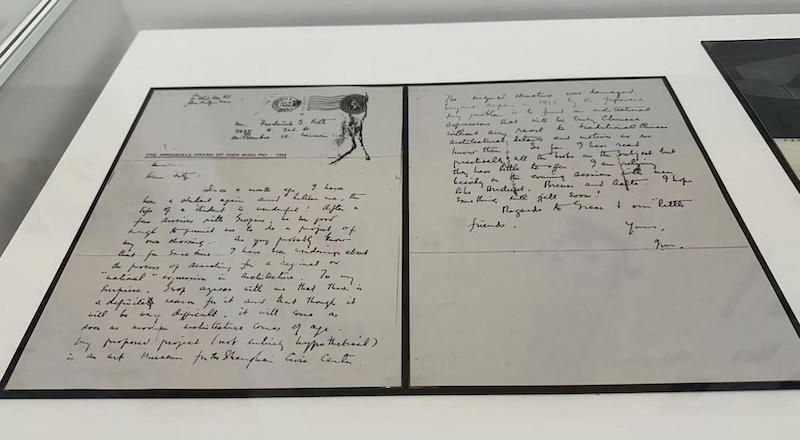 Mr. Frederick S. Roth
THE IMPOSSIBLE DREAM OF IEOH MING PEI - 1946
Dear Fritz,
Since a month ago I have
been a student again and believe me, the
life of a student is wonderful. After a
few sessions with Gropius, he was good
enough to permit me to do a project of
my own choosing. As you probably know
that for some time I have been wondering about
the process of searching for a regional or
"national" expression in architecture. To my
surprise, Grop agrees with me that there is
a definite reason for it and that though it
will be very difficult, it will come as
soon as modern architecture comes of age.
My proposed project (not entirely hypothetical)
is an Art Museum for the Shanghai Civic Center.
The original structure was damaged
beyond repair in by the Japanese
My problem is to find an architectural
expression that will be truly Chinese
without any resort to traditional Chinese
architectural details and motives as we
know them. So far I have read
practically all the books on the subject but
they have little to offer. I am relying
heavily on the coming sessions with men
like Hudnut, Breuer and Aalto. I hope
something will gel soon!
Regards to Grace & our little
friends.
Yours,